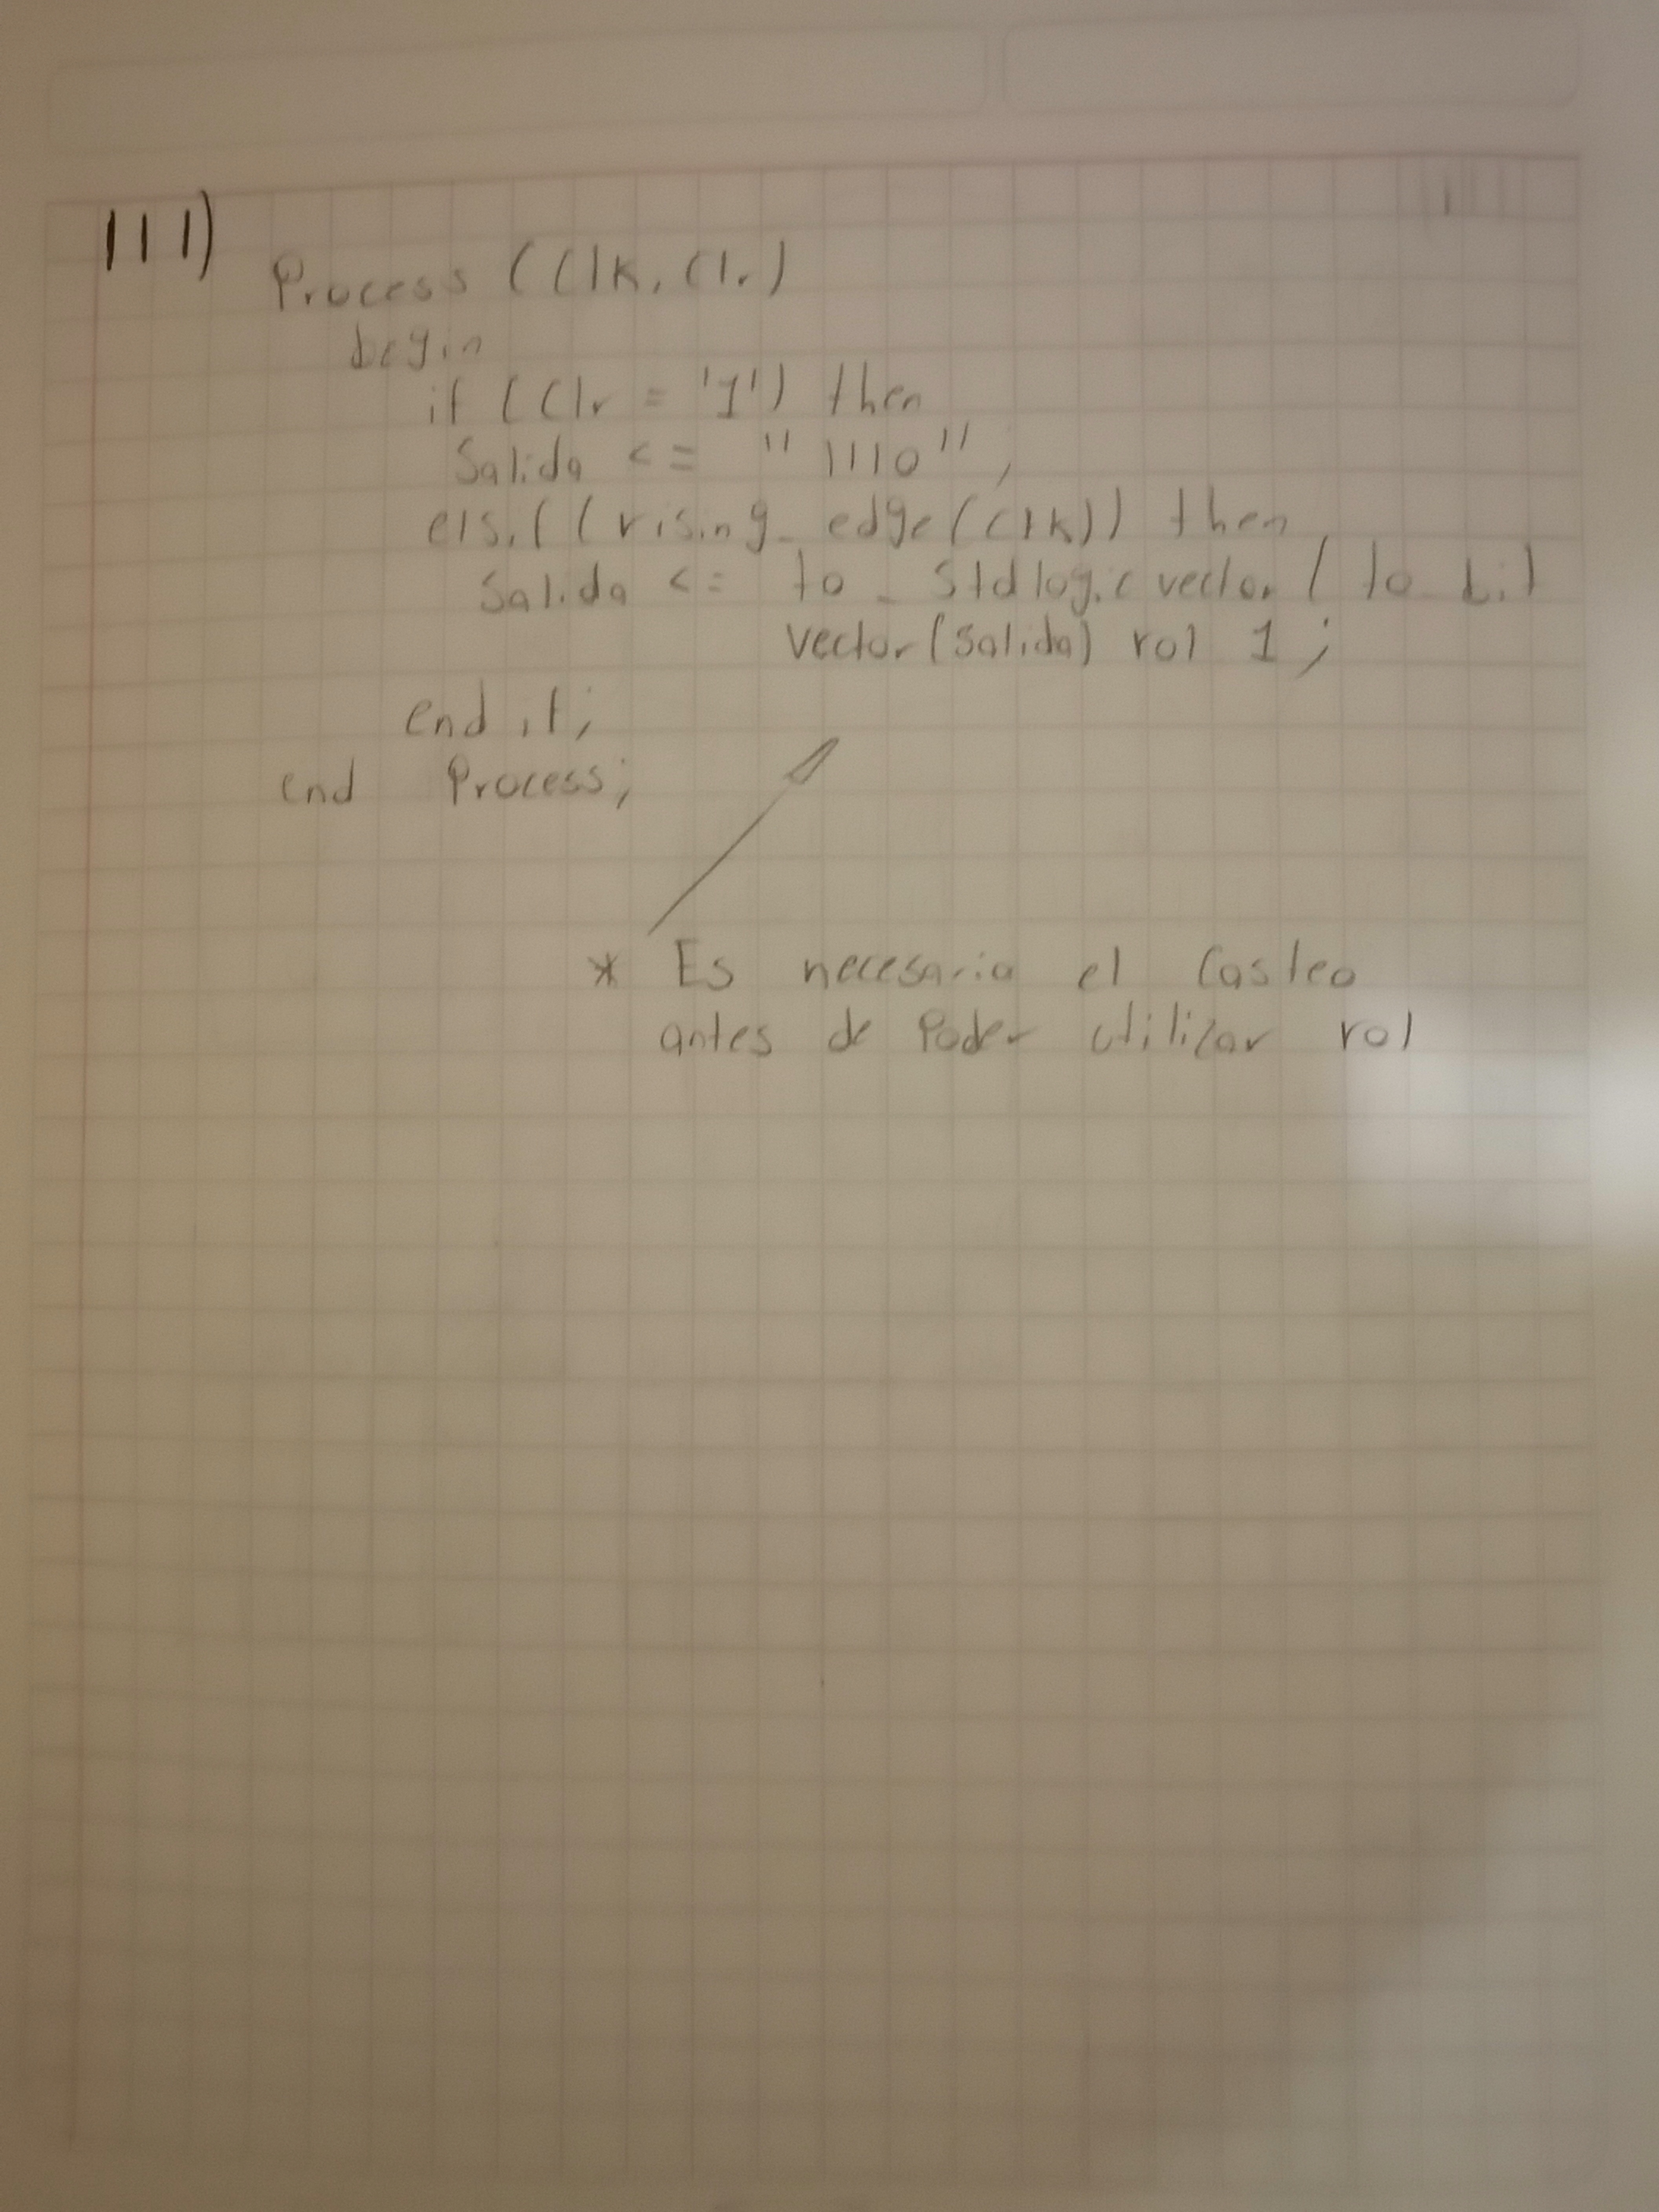 111)
Process (Clk, Clr)
begin
if (Clr = '1') then
Salida <= "1110";
elsif (rising_edge(clk)) then
Salida <= to_stdlogicvector(to_bit
vector(salida) rol 1;
end if;
end Process;
* Es necesario el Casteo
antes de Poder utilizar rol